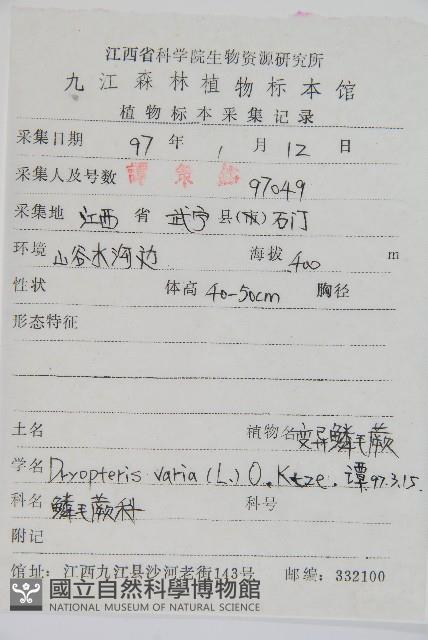 江西省科学院生物资源研究所
九江森林植物标本馆
植物标本采集记录
采集日期 97 年 1 月 12 日
采集人及号数 譚策銘 97049
采集地 江西 省 武宁 县(市) 石门
环境 山谷水沟边 海拔 400 m
性状 体高 40-50cm 胸径
形态特征
土名 植物名 变异鳞毛蕨
学名 Dryopteris varia (L.) O. Ktze. 谭 97.3.15.
科名 鳞毛蕨科 科号
附记
馆址: 江西九江县沙河老街143号 邮编: 332100
國立自然科學博物館
NATIONAL MUSEUM OF NATURAL SCIENCE